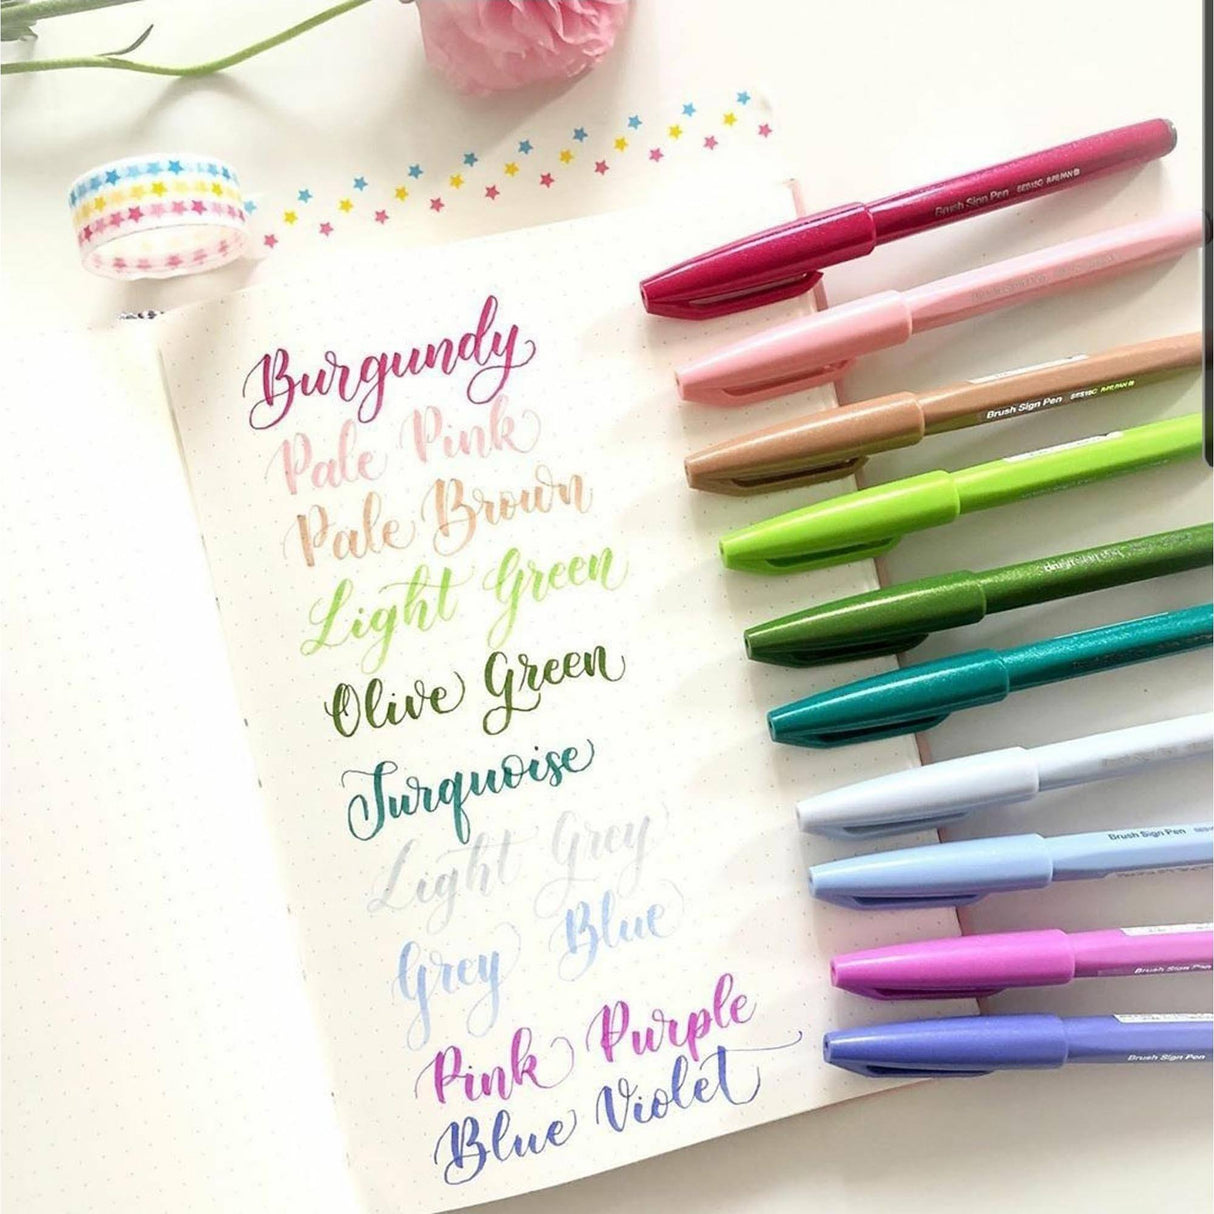 Burgundy
Pale Pink
Pale Brown
Light Green
Olive Green
Turquoise
Light Grey
Grey Blue
Pink Purple
Blue Violet
Brush Sign Pen SES15C
Brush Sign Pen
Brush Sign Pen SES15C
Brush Sign Pen
Brush Sign Pen
Brush Sign Pen